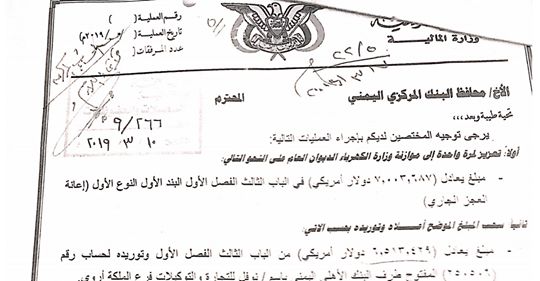 رقم العملية : (
تاريخ العملية : / /٢٠١٩م
عدد المرفقات : (
وزارة المالية
٢٢/٥
الأخ/ محافظ البنك المركزي اليمني المحترم
تحية طيبة وبعد ،،،
٩/٢٦٦
٢٠١٩ ٣ ١٠
يرجى توجيه المختصين لديكم بإجراء العمليات التالية:
أولاً: تعزيز غرة واحدة إلى موازنة وزارة الكهرباء الديوان العام على النحو التالي:
- مبلغ يعادل (٧,٠٠٣,٦٨٧ دولار أمريكي) في الباب الثالث الفصل الأول البند الأول النوع الأول (إعانة
العجز الجاري)
ثانياً سحب المبلغ الموضح أعلاه وتوريده بحسب الآتي:
- مبلغ يعادل (٦,٥١٣,٤٢٩ دولار أمريكي) من الباب الثالث الفصل الأول وتوريده لحساب رقم
(٢٥٠٥٠٦) المفتوح طرف البنك الأهلي اليمني باسم/ نوفل للتجارة والتوكيلات فرع الملكة أروى.